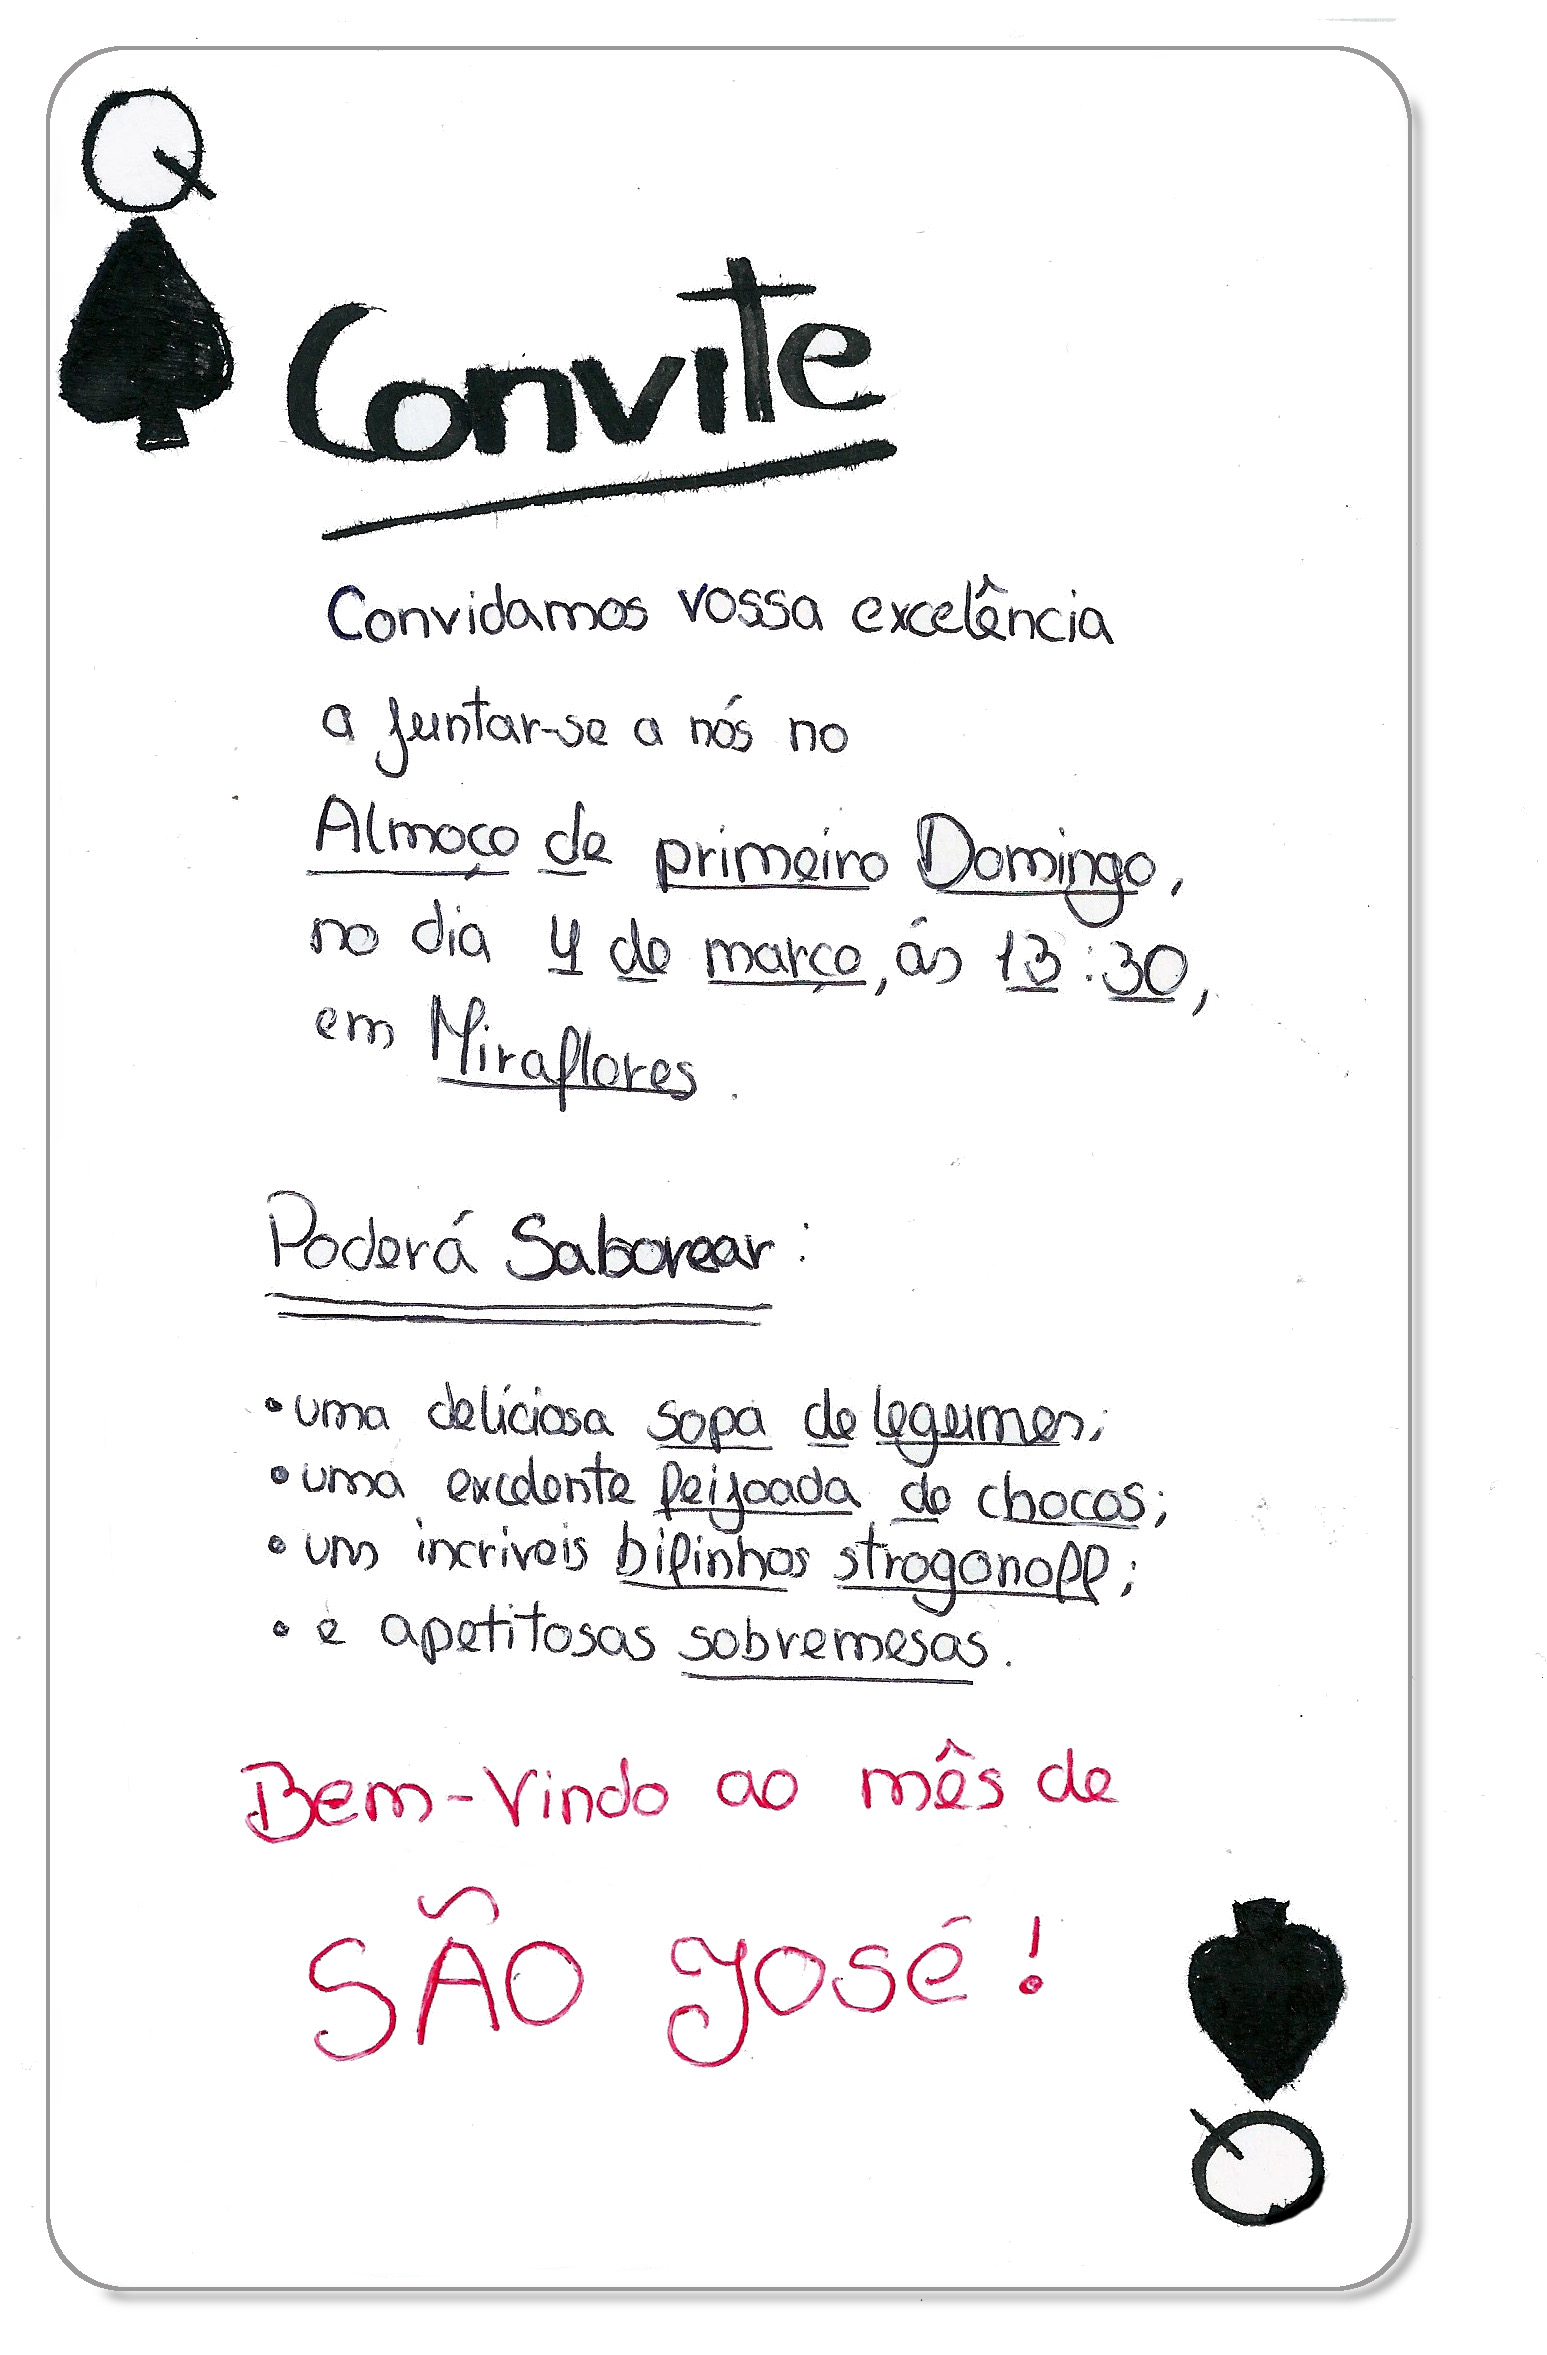 Q
Convite
Convidamos vossa excelência
a juntar-se a nós no
Almoço de primeiro Domingo,
no dia 4 de março, ás 13:30,
em Miraflores.
Poderá Saborear:
• uma deliciosa sopa de legumes;
• uma excelente feijoada de chocos;
• uns incriveis bifinhos strogonoff;
• e apetitosas sobremesas.
Bem-Vindo ao mês de
SÃO José!
Q